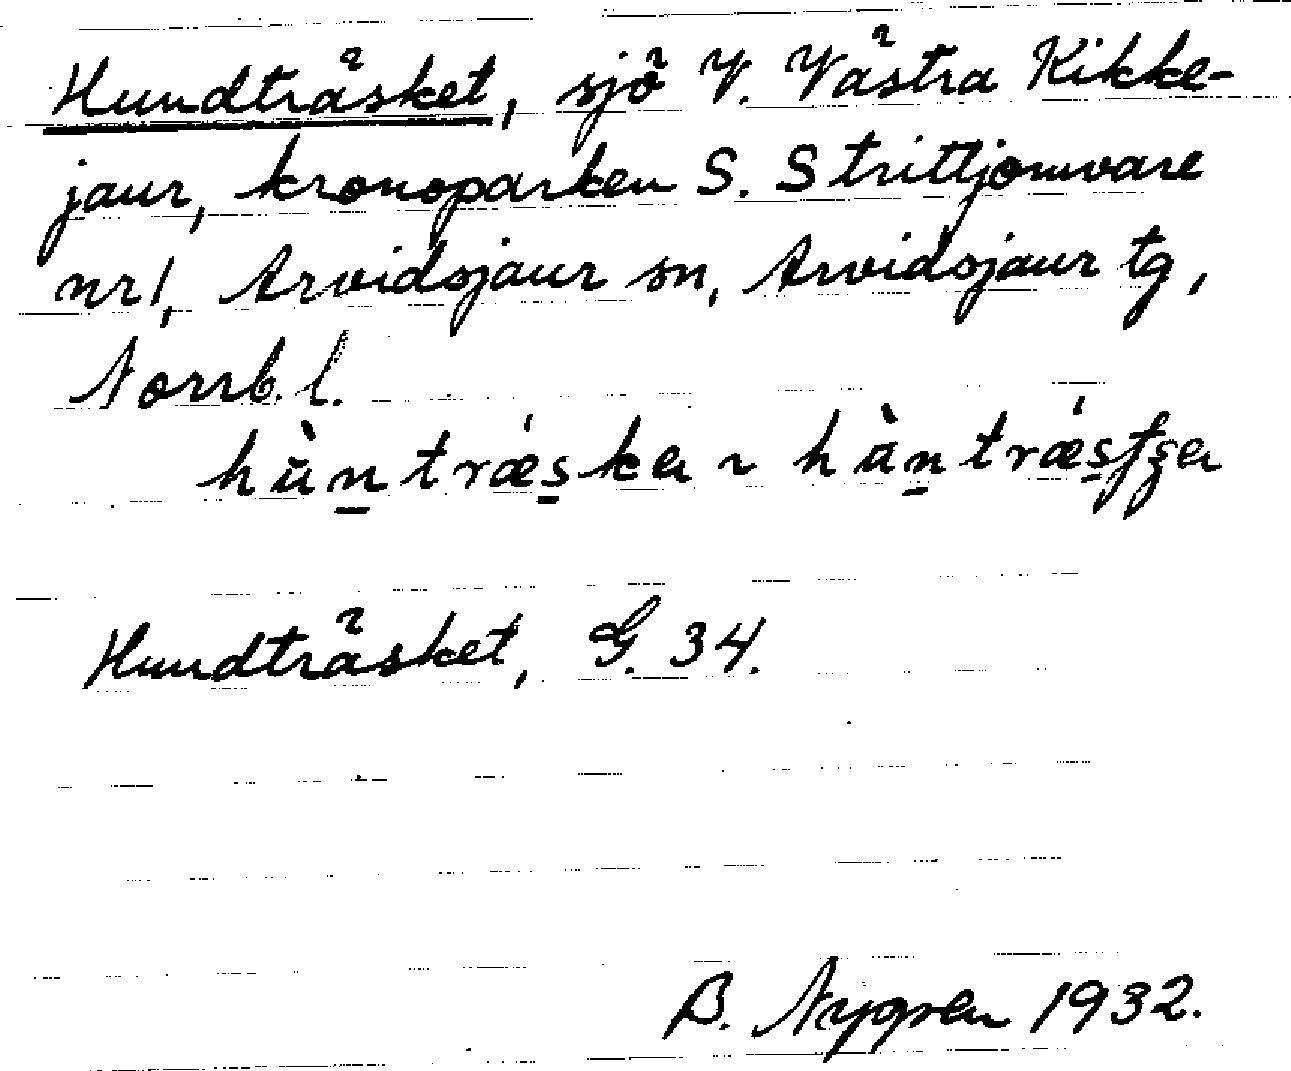 Hundträsket, sjö V. Västra Kikke-
jaur, kronoparken S. Strittjomvare
nr 1, Arvidsjaur sn, Arvidsjaur tg,
Norrb. l.
Hundträsket, G. 34.
B. Nygren 1932.